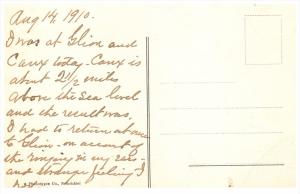 Aug 14, 1910.
I was at Glion and
Caux today - Caux is
about 2 1/2 miles
above the sea level
and the result was,
I had to return at once
to Glion - on account of
the ringing in my ears -
and strange feeling I
Phototypie Co., Neuchâtel